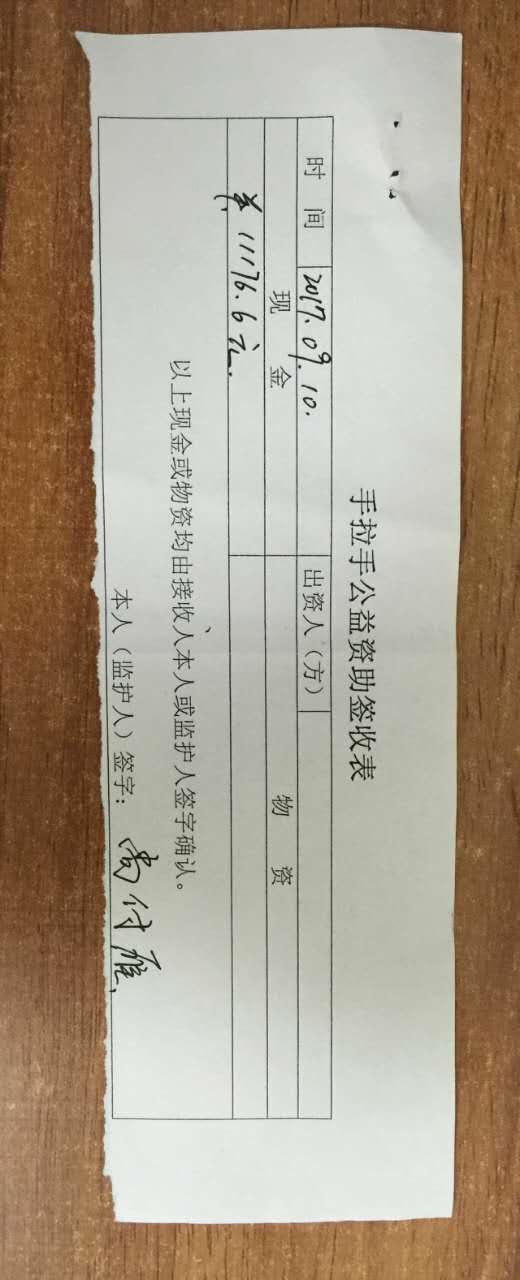 手拉手公益资助签收表
时 间 2017.09.10. 出资人（方）
现 金 物 资
11176.6元.
以上现金或物资均由接收人本人或监护人签字确认。
本人（监护人）签字：